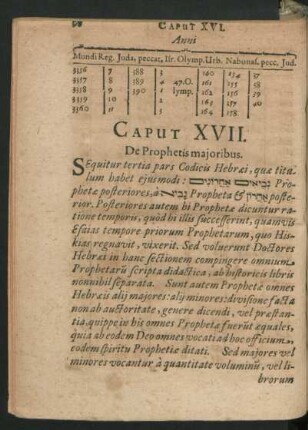 CAPUT XVI.
Anni
Mundi Reg. Juda, peccat. Isr. Olymp. Urb. Nabonas. pecc. Jud.
3336 7 188 1 160 154 37
3357 8 189 4 47.O. 161 155 38
3358 9 190 1 lymp. 162 156 39
3359 10 2 163 157
3360 11 3 164 158 40
CAPUT XVII.
De Prophetis majoribus.
SEquitur tertia pars Codicis Hebræi, quæ titu-
lum habet ejusmodi: נביאים אחרונים Pro-
phetæ posteriores, à נביא Propheta & אחרון poste-
rior. Posteriores autem hi Prophetæ dicuntur ra-
tione temporis, quòd his illis successerint, quamvis
Esaias tempore priorum Prophetarum, quo His-
kias regnavit, vixerit. Sed voluerunt Doctores
Hebræi in hanc sectionem compingere omnium
Prophetarũ scripta didactica; ab historicis libris
nonnihil separata. Sunt autem Prophetæ omnes
Hebræis alij majores: alij minores: divisione factâ
non ab auctoritate, genere dicendi, vel præstan-
tia, quippe in his omnes Prophetæ fuerũt æquales,
quia ab eodem Deo omnes vocati ad hoc officium,
eodem spiritu Prophetiæ ditati. Sed majores vel
minores vocantur à quantitate voluminũ, vel li-
brorum